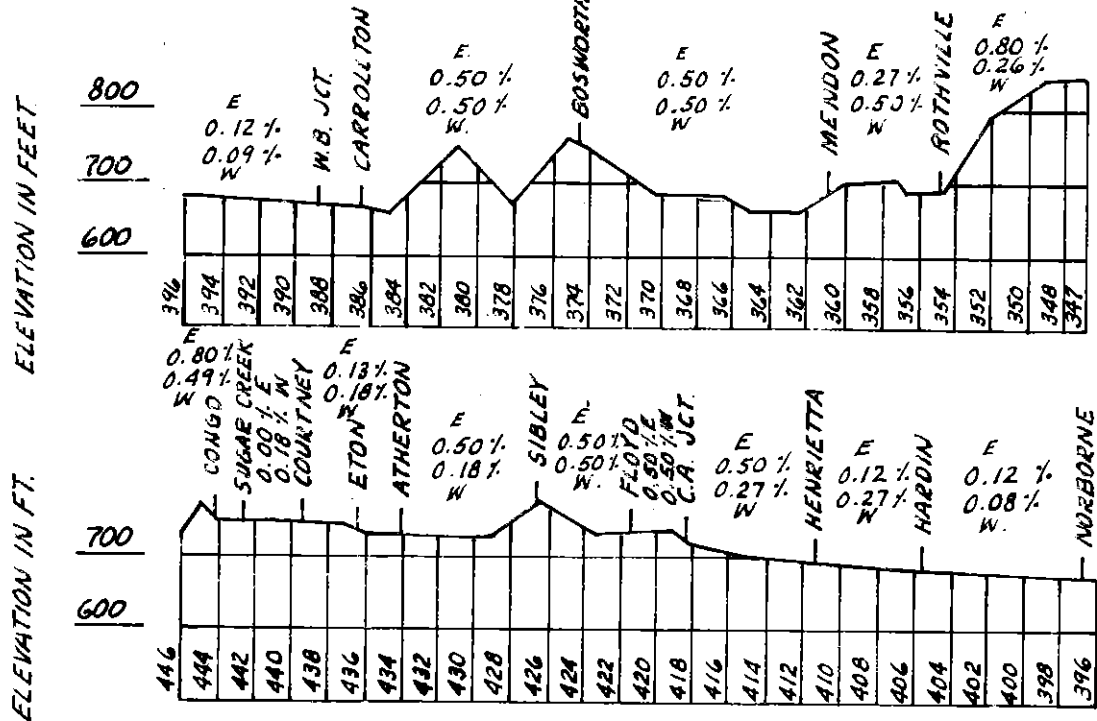 ELEVATION IN FEET
800
700
600
E
0.12 %
0.09 %
W
W.B. JCT.
CARROLLTON
E.
0.50 %
0.50 %
W.
BOSWORTH
E
0.50 %
0.50 %
W
MENDON
E
0.27 %
0.50 %
W
ROTHVILLE
E
0.80 %
0.26 %
W
396 394 392 390 388 386 384 382 380 378 376 374 372 370 368 366 364 362 360 358 356 354 352 350 348 347
ELEVATION IN FT.
700
600
E
0.80 %
0.49 %
W
CONGO
SUGAR CREEK
0.00 % E
0.18 % W
COURTNEY
E
0.13 %
0.18 %
W
ETON
ATHERTON
E
0.50 %
0.18 %
W
SIBLEY
E
0.50 %
0.50 %
W.
FLOYD
0.50 % E
0.50 % W
C.A. JCT.
E
0.50 %
0.27 %
W
HENRIETTA
E
0.12 %
0.27 %
W
HARDIN
E
0.12 %
0.08 %
W.
NORBORNE
446 444 442 440 438 436 434 432 430 428 426 424 422 420 418 416 414 412 410 408 406 404 402 400 398 396